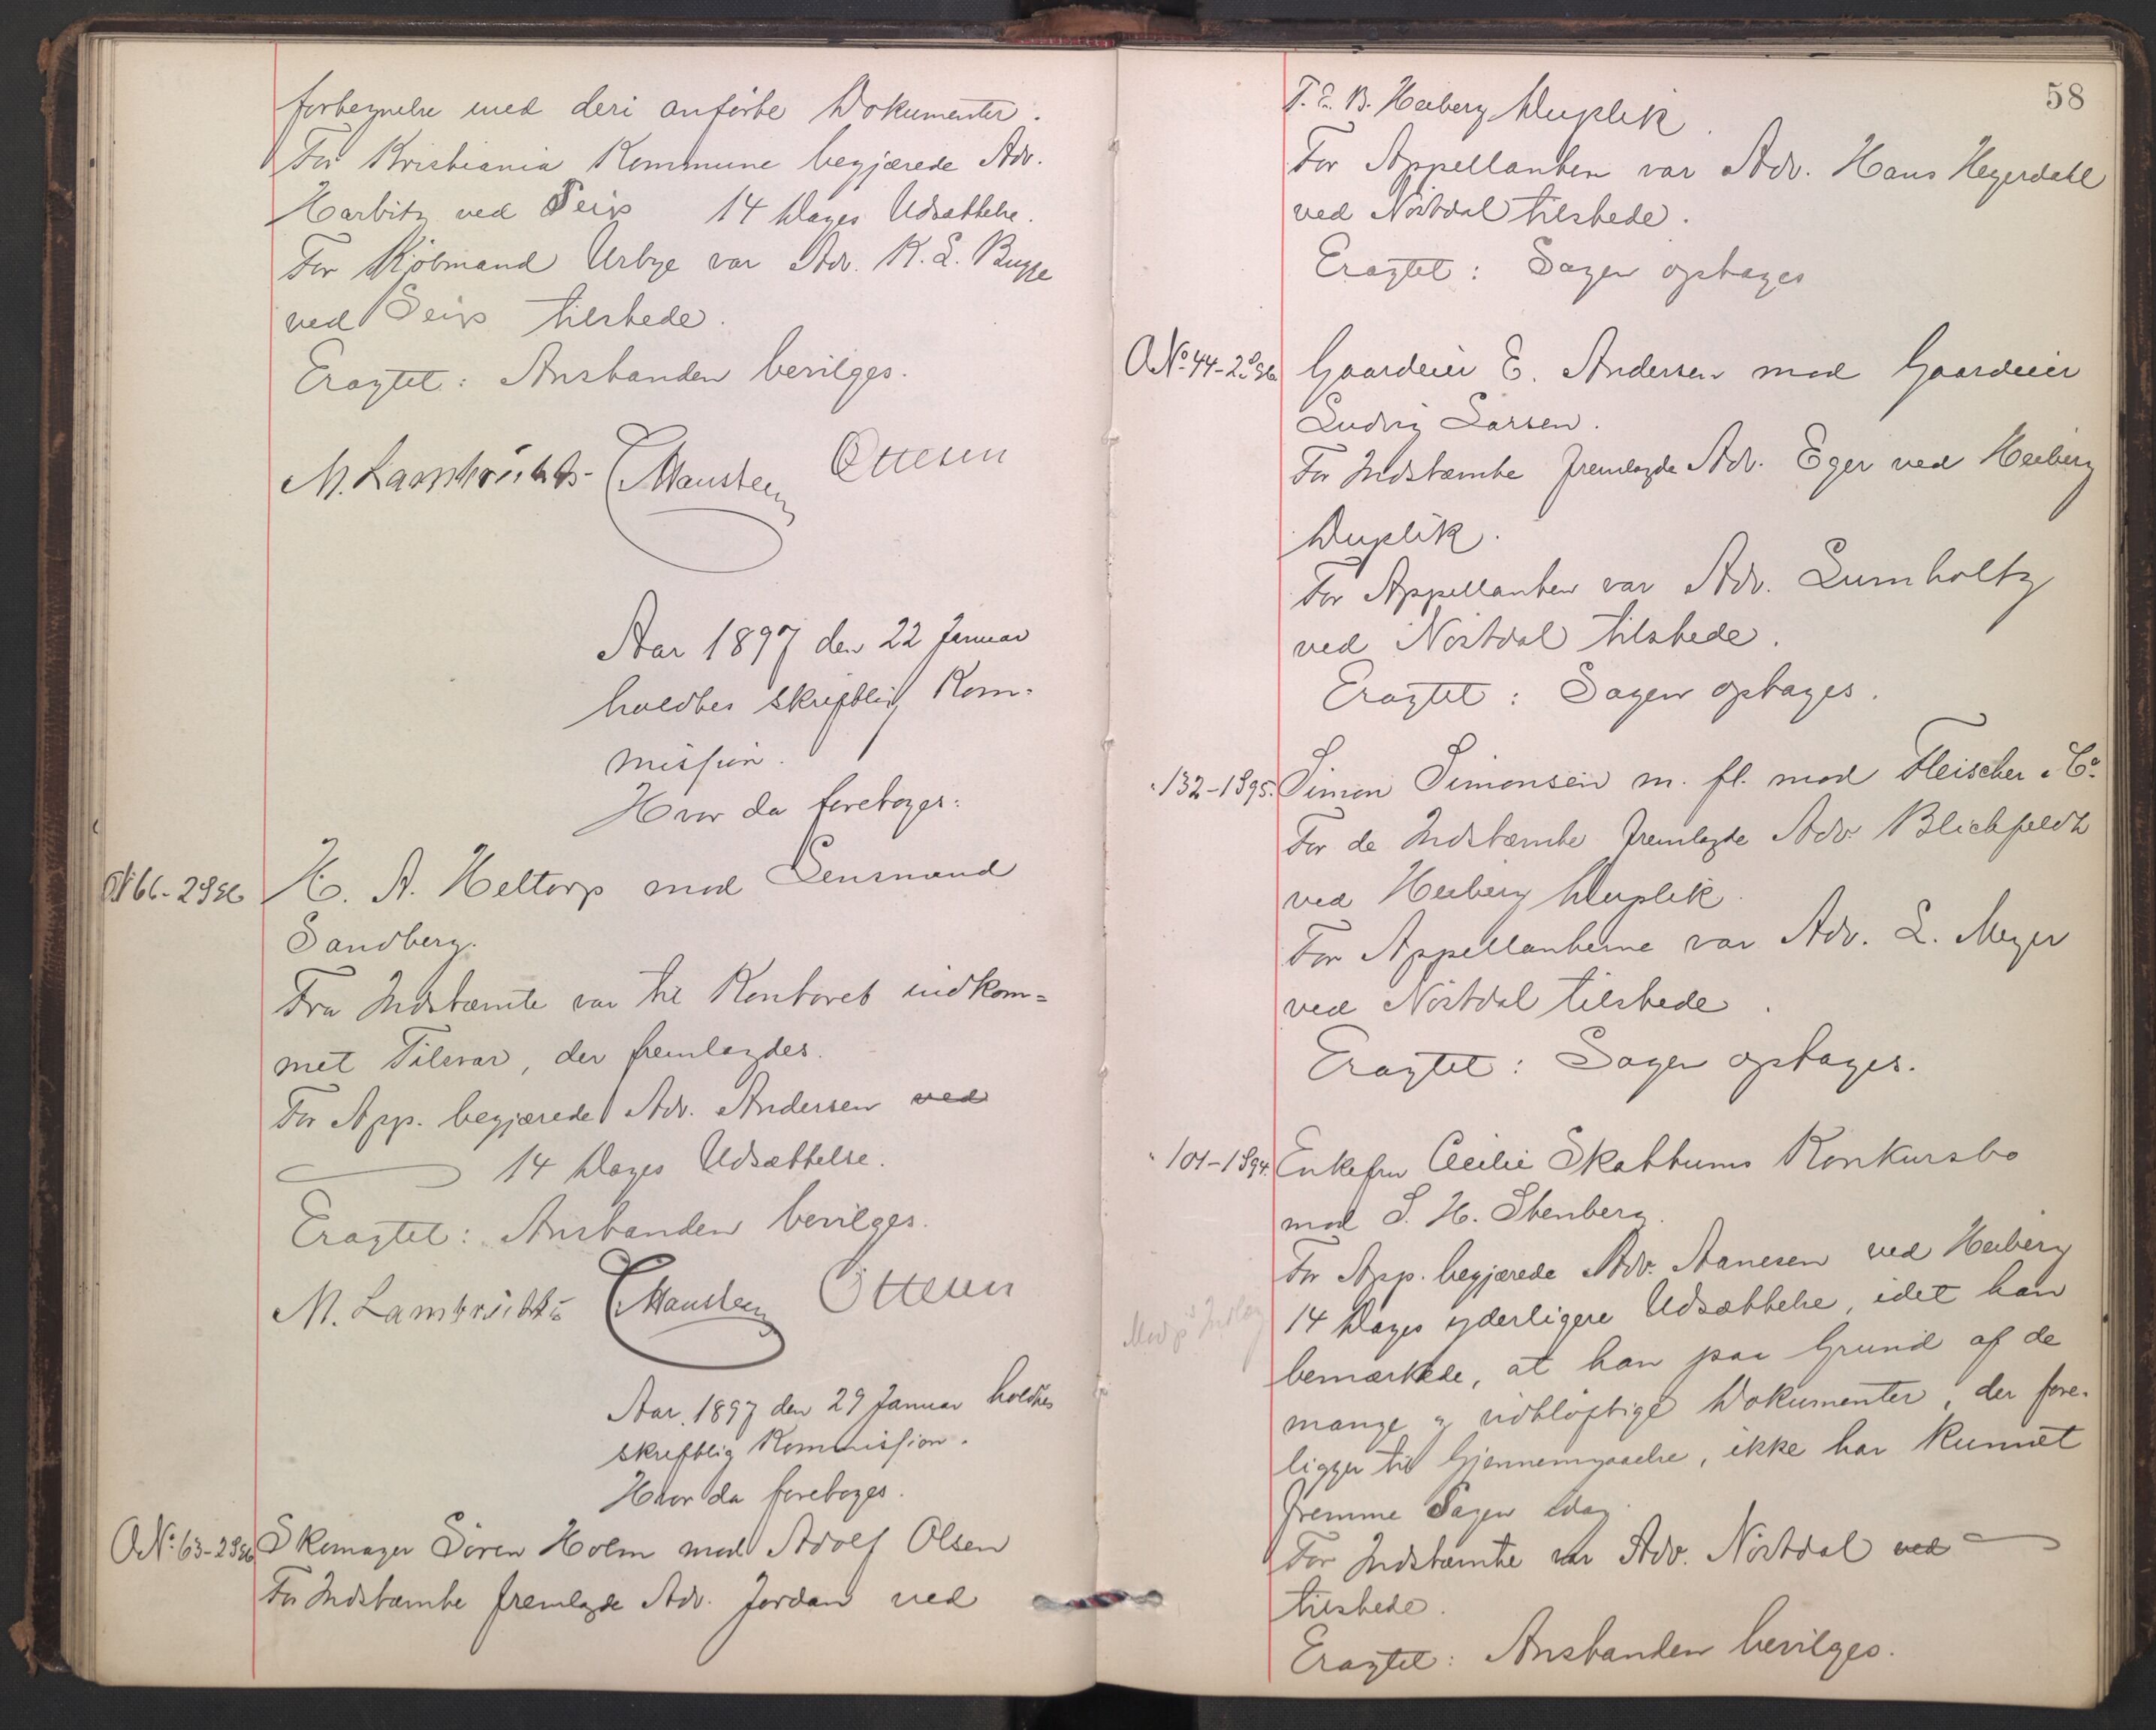 fortegnelse med deri anførte Dokumenter.
For Kristiania Kommune begjærede Adv.
Harbitz ved Seip 14 Dages Udsættelse.
For Kjøbmand Urbye var Adv. K. L. Bugge
ved Seip tilstede.
Eragtet: Anstanden bevilges.
M. Lambrechts CHansteen Ottesen
Aar 1897 den 22 Januar
holdtes skriftlig Kom-
mission.
Hvor da foretoges:
No 66-2 S 96 H. A. Heltorp mod Lensmand
Sandberg.
Fra Indstævnte var til Kontoret indkom=
met Tilsvar, der fremlagdes.
For App. begjærede Adv. Andersen ved
14 Dages Udsættelse.
Eragtet: Anstanden bevilges.
M. Lambrechts CHansteen Ottesen
Aar 1897 den 29 Januar holdtes
skriftlig Kommission.
Hvor da foretoges.
A No 63-2 S 96 Skomager Søren Holm mod Adolf Olsen
For Indstævnte fremlagde Adv. Jordan ved
58
T. E. B. Heiberg Duplik.
For Appellanten var Adv. Hans Heyerdahl
ved Nøstdal tilstede.
Eragtet: Sagen optages
A No 44-2 S 96 Gaardeier E. Andersen mod Gaardeier
Ludvig Larsen.
For Indstævnte fremlagde Adv. Eger ved Heiberg
Duplik.
For Appellanten var Adv. Lumholtz
ved Nøstdal tilstede.
Eragtet: Sagen optages.
" 132-1 S 95. Simon Simonsen m. fl. mod Fleischer & Co.
For de Indstævnte fremlagde Adv. Blichfeldt
ved Heiberg Duplik.
For Appellanterne var Adv. L. Meyer
ved Nøstdal tilstede.
Eragtet: Sagen optages.
" 101-1 S 94. Enkefru Cecilie Skattums Konkursbo
mod S. H. Stenberg.
For App. begjærede Adv. Aanesen ved Heiberg
14 Dages yderligere Udsættelse, idet han
bemærkede, at han paa Grund af de
mange og vidløftige Dokumenter, der fore-
ligger til Gjennemgaaelse, ikke har kunnet
fremme Sagen idag.
For Indstævnte var Adv. Nøstdal ved
tilstede.
Eragtet: Anstanden bevilges.